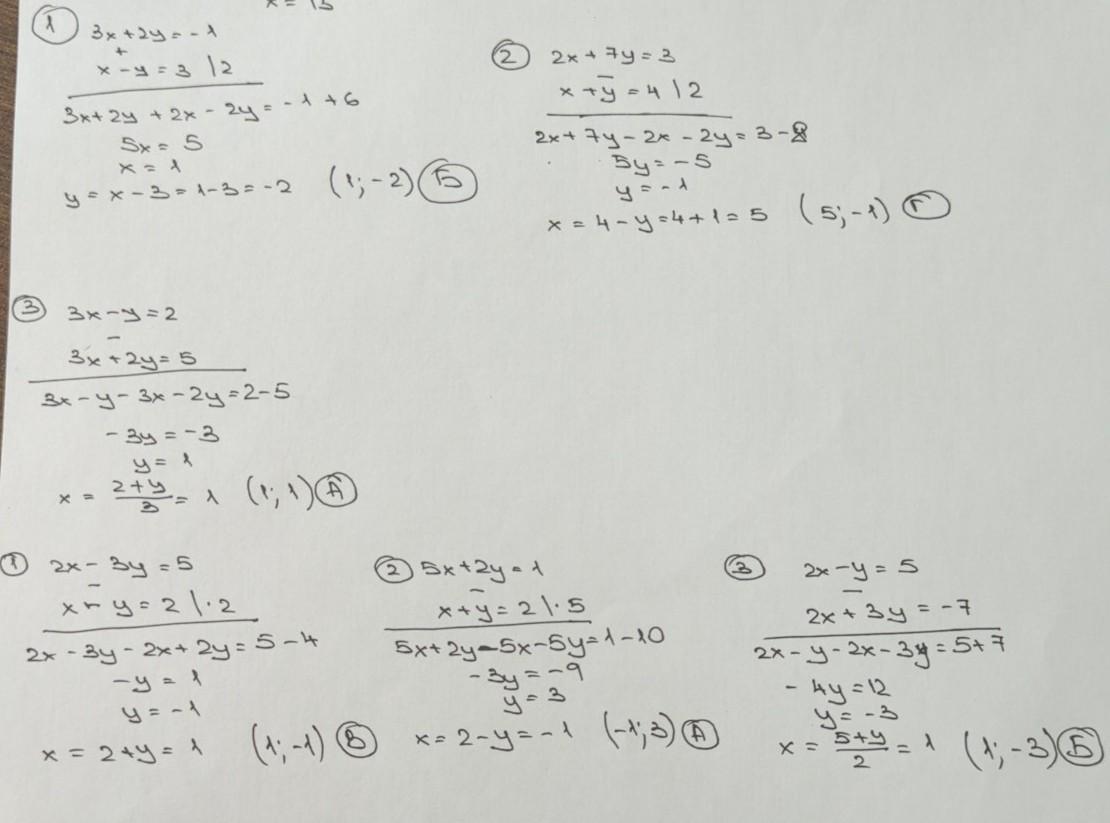 x = 13
① 3x+2y=-1
+
x-y=3 |2
3x+2y+2x-2y=-1+6
5x=5
x=1
y=x-3=1-3=-2 (1;-2) Б
② 2x+7y=3
-
x+y=4 |2
2x+7y-2x-2y=3-8
5y=-5
y=-1
x=4-y=4+1=5 (5;-1) Г
③ 3x-y=2
-
3x+2y=5
3x-y-3x-2y=2-5
-3y=-3
y=1
x=(2+y)/3=1 (1;1) А
① 2x-3y=5
-
x-y=2 |·2
2x-3y-2x+2y=5-4
-y=1
y=-1
x=2+y=1 (1;-1) В
② 5x+2y=1
-
x+y=2 |·5
5x+2y-5x-5y=1-10
-3y=-9
y=3
x=2-y=-1 (-1;3) А
③ 2x-y=5
-
2x+3y=-7
2x-y-2x-3y=5+7
-4y=12
y=-3
x=(5+y)/2=1 (1;-3) Б